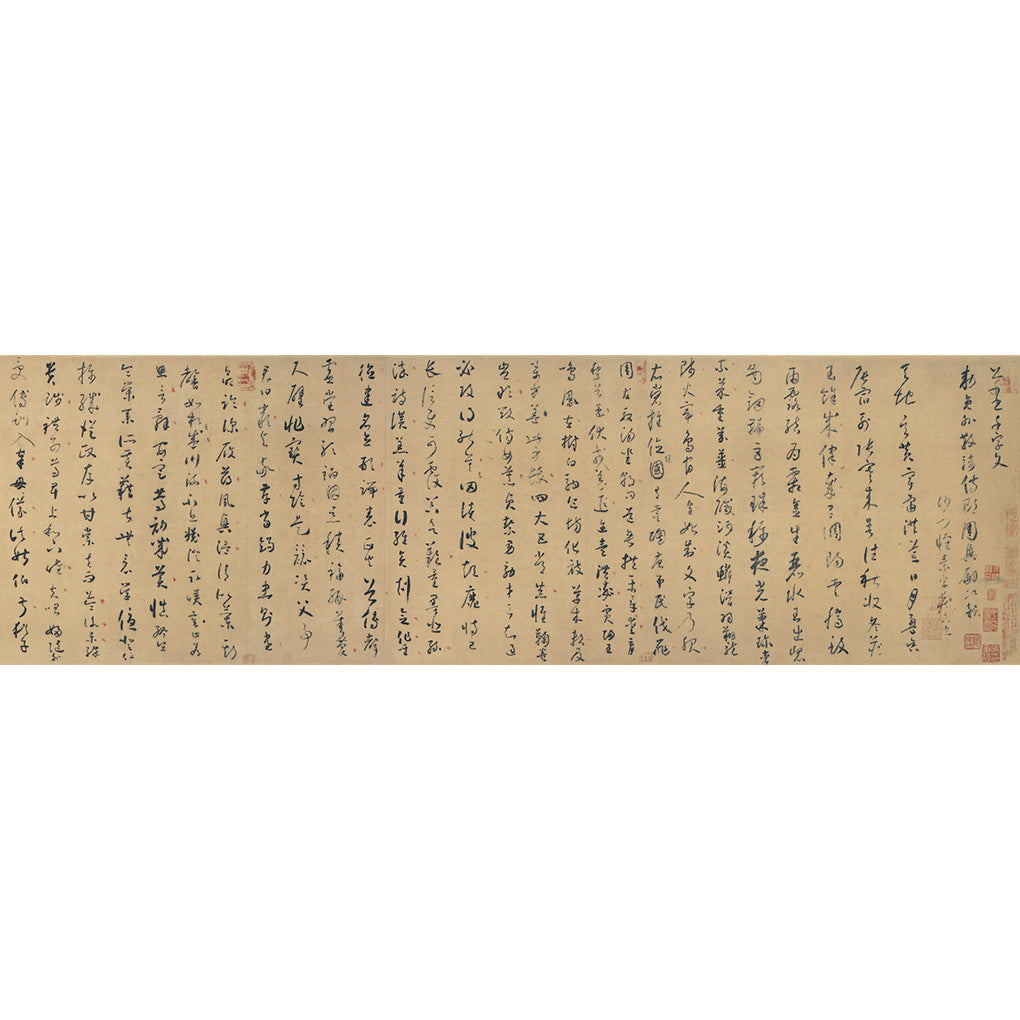 千字文
敕員外散騎侍郎周興嗣次韻
天地玄黃宇宙洪荒日月盈昃
辰宿列張寒來暑往秋收冬藏
餘成律呂調陽雲騰致
雨露結為霜金生麗水玉出崐
崗劍號巨闕珠稱夜光菓珍李
柰菜重芥薑海鹹河淡鱗潛羽翔龍
師火帝鳥官人皇始制文字乃服
衣裳推位國有虞陶唐弔民伐罪
周發殷湯坐朝問道垂拱平章愛育
黎首臣伏戎羌遐邇壹體率賓歸王
鳴鳳在樹白駒食場化被草木賴及
萬方蓋此身髮四大五常恭惟鞠養
豈敢毀傷女慕貞潔男效才良知過
必改得能莫忘罔談彼短靡恃己
長信使可覆器欲難量墨悲絲
染詩讚羔羊景行維賢剋念作聖
德建名立形端表正空谷傳聲
虛堂習聽禍因惡積福緣善慶
尺璧非寶寸陰是競資父事
君曰嚴與敬孝當竭力忠則盡
命臨深履薄夙興溫凊似蘭斯
馨如松之盛川流不息淵澄取映容止若
思言辭安定篤初誠美慎終宜
令榮業所基藉甚無竟學優登仕
攝職從政存以甘棠去而益詠樂殊
貴賤禮別尊卑上和下睦夫唱婦隨外
受傅訓入奉母儀諸姑伯叔猶子